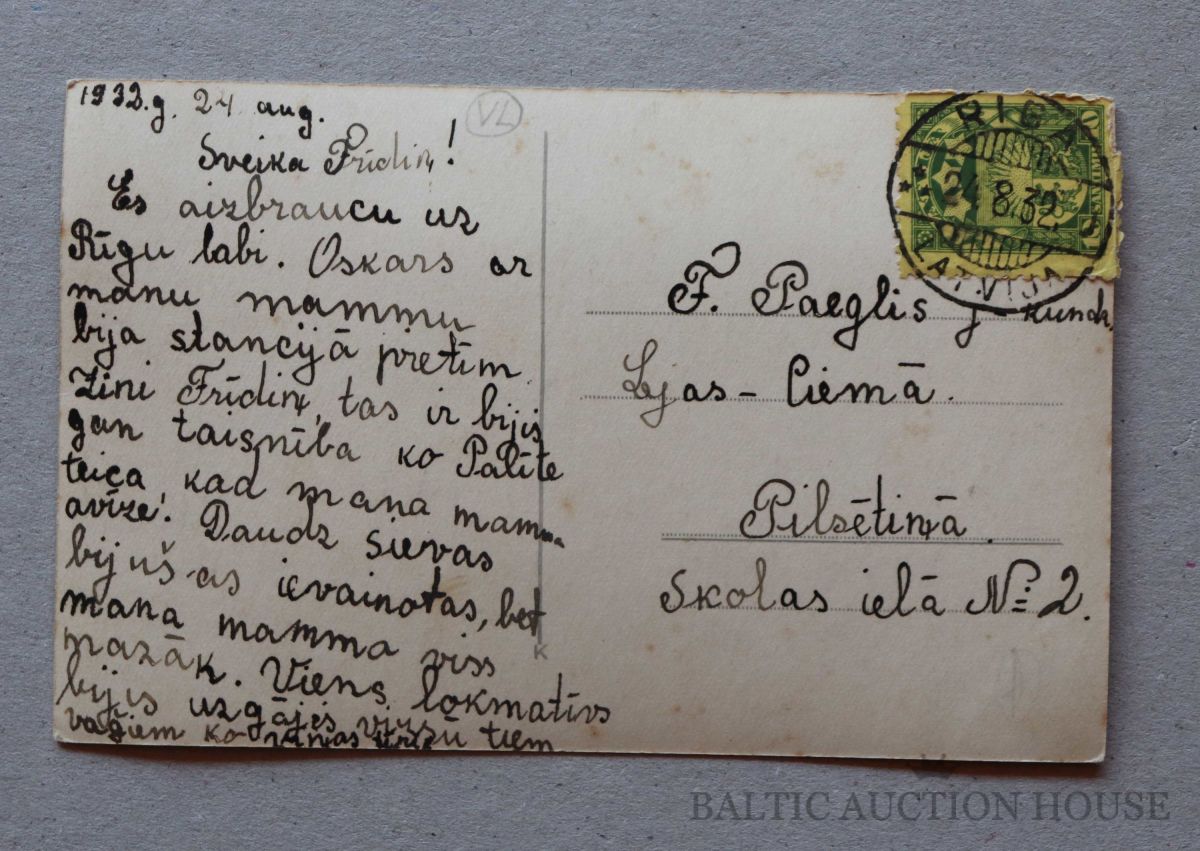 1932.g. 24 aug.
VL
Sveika Frīdiņ!
Es aizbraucu uz
Rīgu labi. Oskars ar
manu mammu
bija stancijā pretīm
Zini Frīdiņ, tas ir bijis
gan taisnība ko Palīte
teica kad mana mamma
avīze! Daudz sievas
bijuš-as ievainotas, bet
mana mamma viss
mazāk. Viens lokmatīvs
bijis uzgājes virsū tiem
vagiem ko
K
RIGA
24.8.32
LATVIJA
F. Paeglis j-kundz.
Lejas-Ciemā.
Pilsētiņā.
Skolas ielā № 2.
BALTIC AUCTION HOUSE